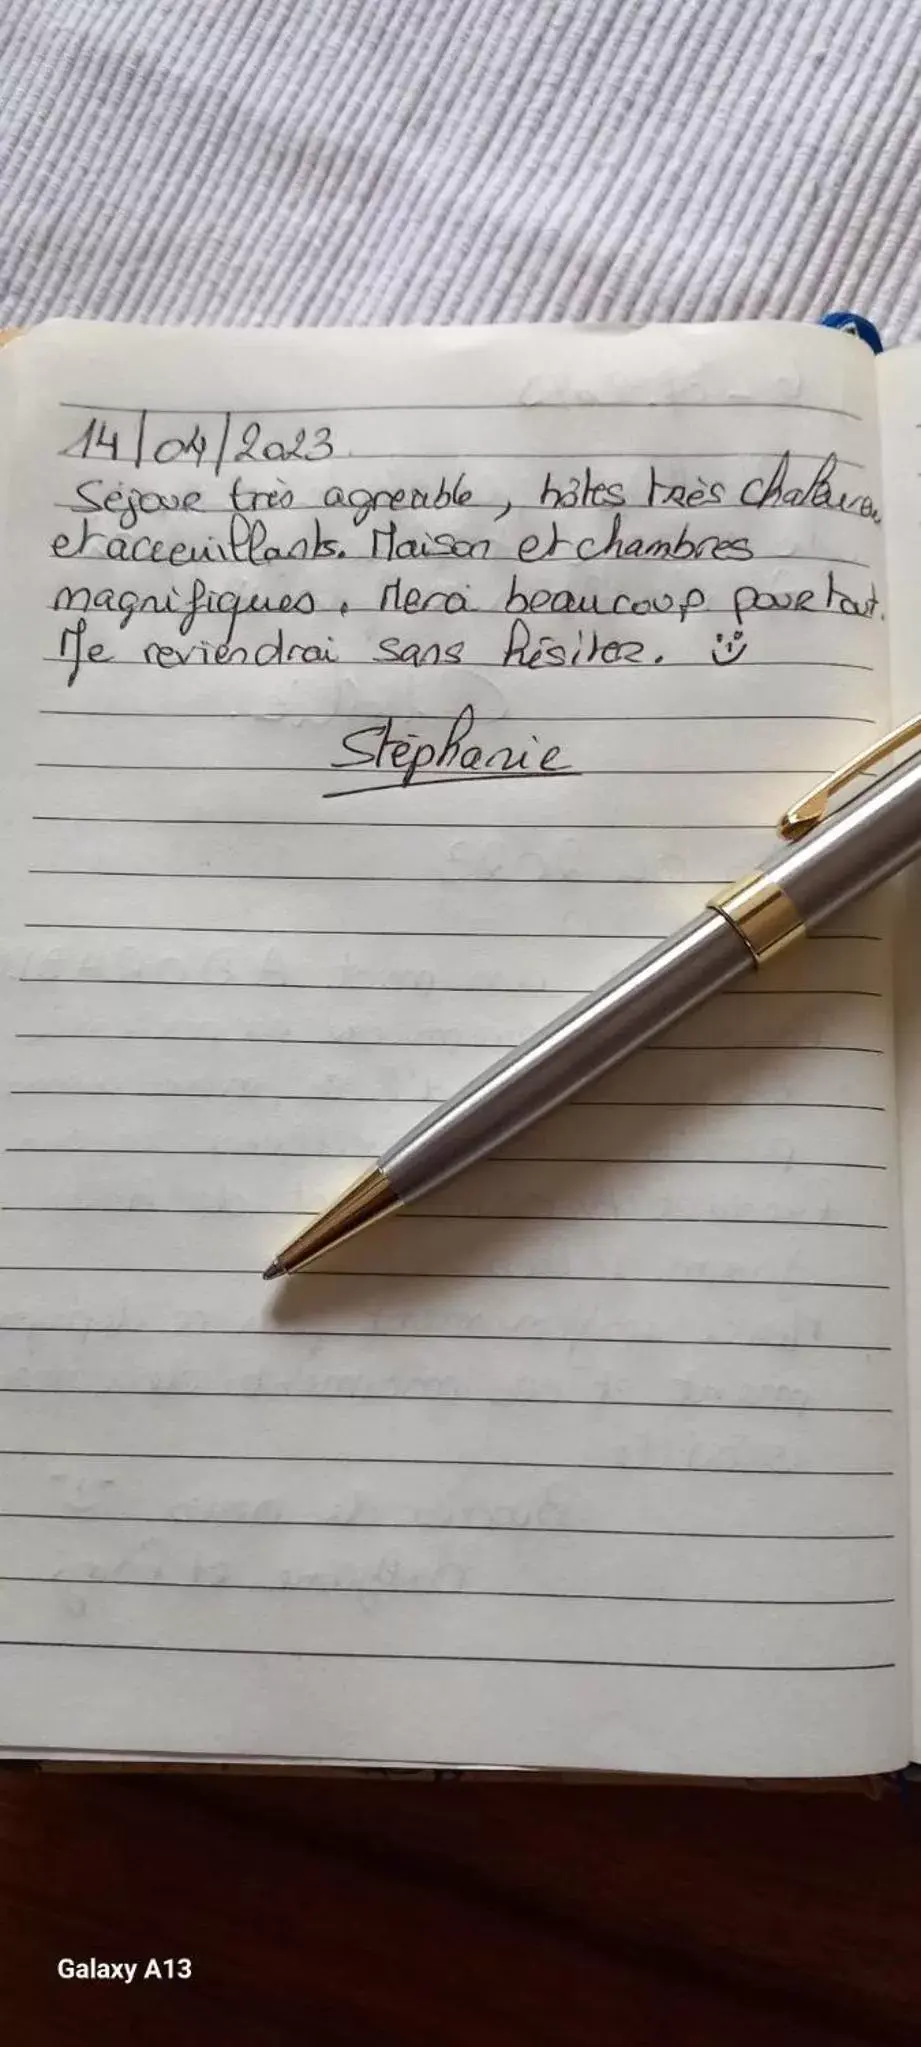 14/04/2023
Séjour très agreable, hôtes très chaleureu
et acceuillants. Maison et chambres
magnifiques. Merci beaucoup pour tout.
Je reviendrai sans hésiter. :)
Stéphanie
Galaxy A13